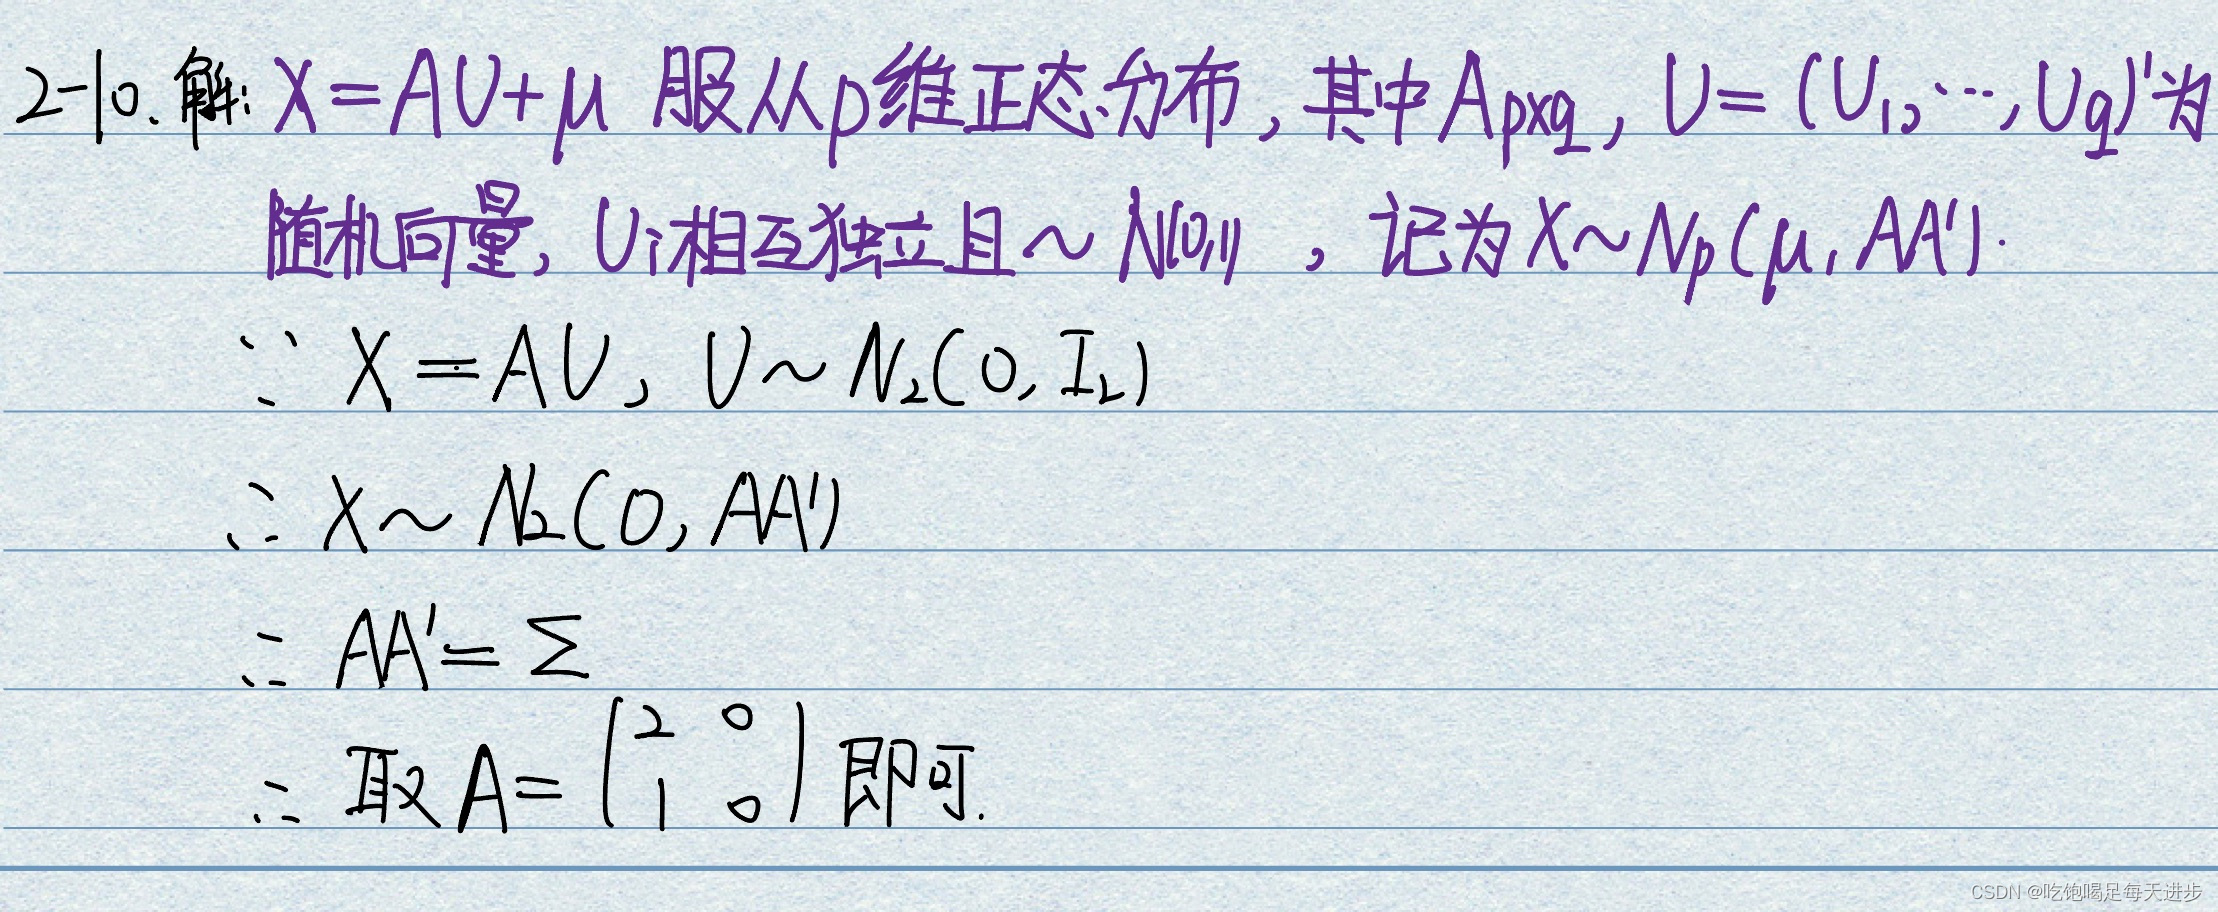 2-10. 解: X=AU+μ 服从p维正态分布, 其中A_{p×q}, U=(U₁,…,U_q)'为
随机向量, U_i相互独立且~N(0,1) , 记为X~N_p(μ, AA').
∵ X=AU, U~N₂(0, I₂)
∴ X~N₂(0, AA')
∴ AA'=Σ
∴ 取A=(2 0
1 0) 即可.
CSDN @吃饱喝足每天进步